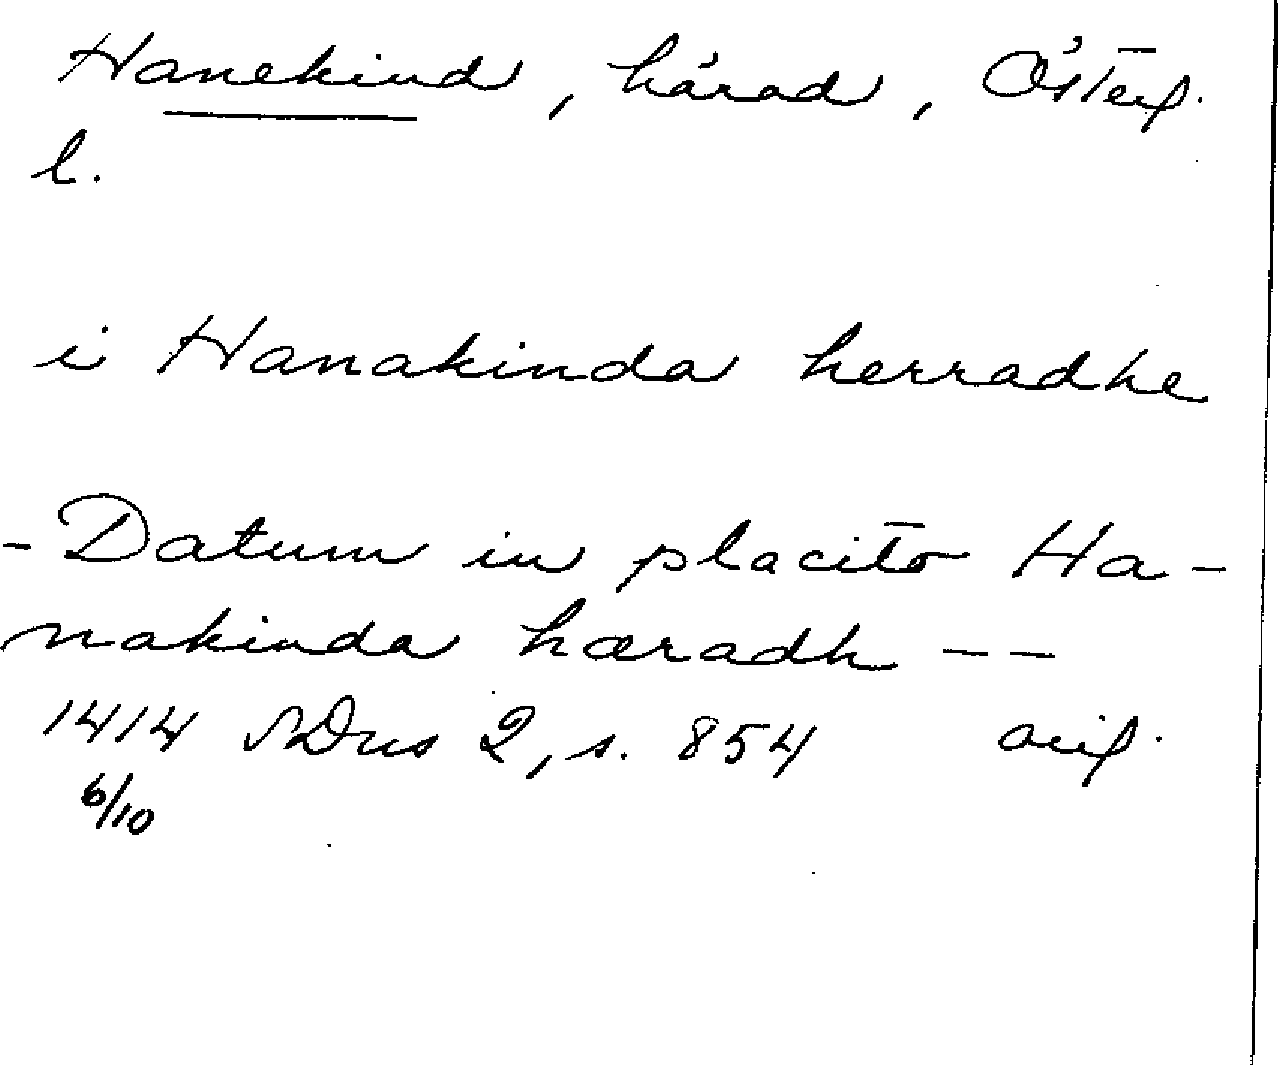 Hanekind, härad, Östergl.
l.
i Hanakinda herradhe
- Datum in placito Ha-
nakinda hæradh --
1414 SDns 2, s. 854 orig.
6/10